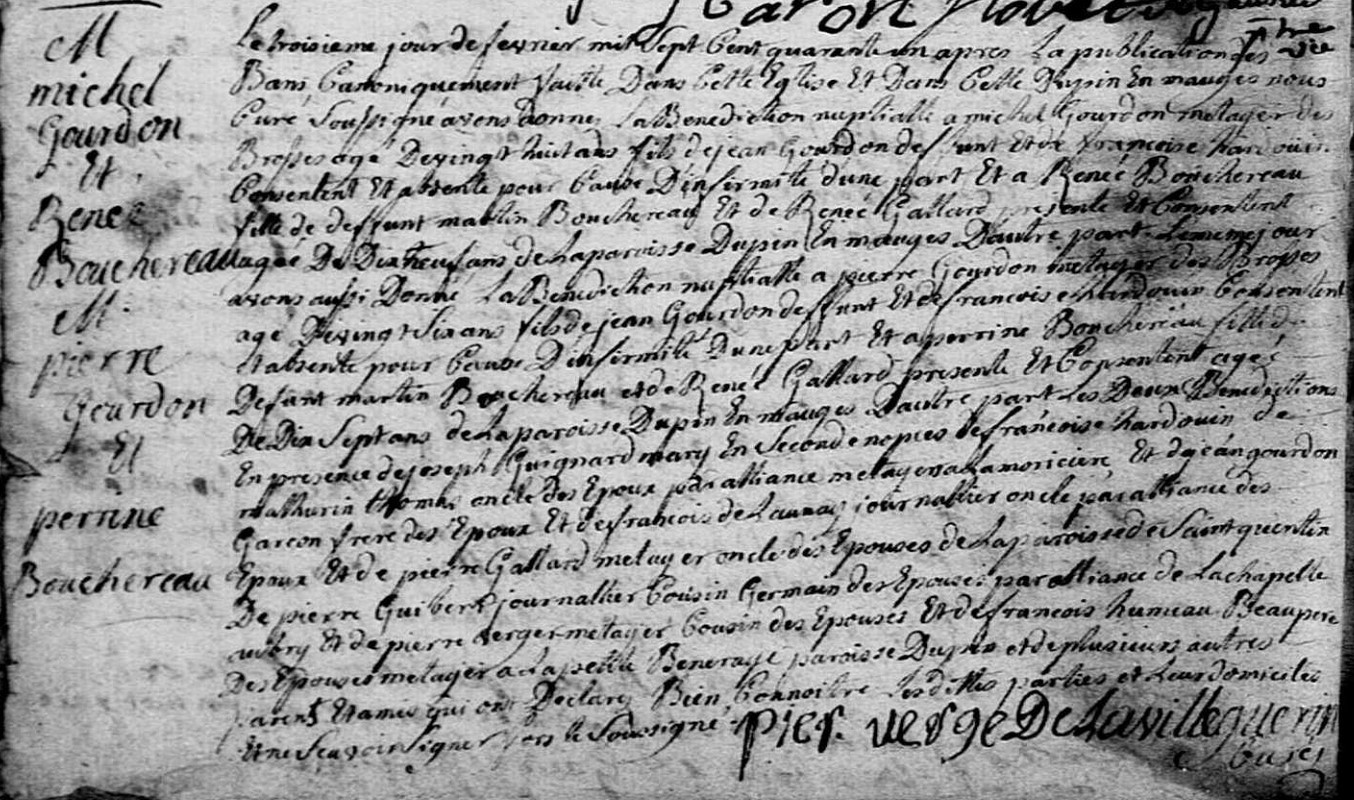 M
michel
Gourdon
Et
Renee
Bouchereau
M.
pierre
Gourdon
Et
perrine
Bouchereau
Le troisieme jour de fevrier mil sept Cent quarante un apres La publication des
Bans Canoniquement faitte Dans Cette Eglise Et Dans Celle Dupin En mauges nous
Curé Soussigné avons donné LaBenediction nuptialle a michel Gourdon metayer des
Brosses agé De vingt huit ans fils de jean Gourdon deffunt Et de francoise hardouin
Consentent Et absente pour Cause Dinfirmité dune part Et a Reneé Bouchereau
fille de deffunt martin Bouchereau Et de Reneé Gallard presente Et Consentent
ageé De Dix neuf ans de Laparoisse Dupin En mauges Dautre part Le meme jour
avons aussi Donné LaBenediction nuptialle a pierre Gourdon metayer des Brosses
agé De vingt Six ans fils de jean Gourdon deffunt Et de francoise hardouin Consentent
Et absente pour Cause Dinfirmité Dune part Et a perrine Bouchereau fille de
Defunt martin Bouchereau et de Reneé Gallard presente Et Consentent ageé
De Dix Sept ans de Laparoisse Dupin En mauges Dautre part Les Deux Benedictions
En presence de joseph Guignard mary En Seconde nopces de francoise hardouin de
mathurin thomas oncle des Epoux par alliance metayer a Lamoriciere Et de jean gourdon
Garcon frere des Epoux Et de francois de Launay journallier oncle par alliance des
Epoux Et de pierre Gallard metayer oncle des Epouses de Laparoisse de Saint quentin
De pierre Guibert journallier Cousin Germain des Epouses par alliance de Lachapelle
aubry Et de pierre verger metayer Cousin des Epouses Et de francois humeau Beaupere
Des Epouses metayer a Lapetitte Benerage paroisse Dupin et de plusieurs autres
parents Et amis qui ont Declaré Bien Connoitre Lesdittes parties et Leurs domiciles
Et ne Scavoir signer fors le Soussigné
pier verge De Lavilleguerin
Curé